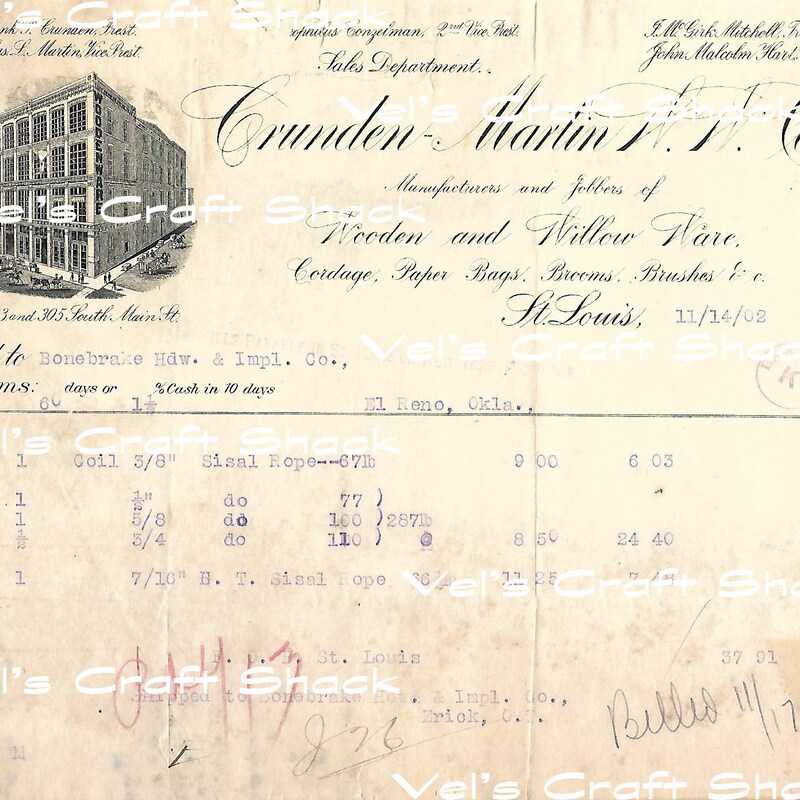 nk T. Crunden, Prest.
s. S. Martin, Vice Prest.
ophilus Conzelman, 2nd Vice Prest.
Sales Department.
J. McGirk Mitchell,
John Malcolm Hart.
WOODENWARE
Crunden-Martin W. W. C
Manufacturers and Jobbers of
Wooden and Willow Ware,
Cordage, Paper Bags, Brooms, Brushes & c.
3 and 305 South Main St.
St. Louis, 11/14/02
to Bonebrake Hdw. & Impl. Co.,
ms: days or % Cash in 10 days
60 1½ El Reno, Okla.,
1 Coil 3/8" Sisal Rope--67lb 9 00 6 03
1 ½" do 77 )
1 5/8 do 100 ) 287lb
½ 3/4 do 110 ) @ 8 50 24 40
1 7/16" H. T. Sisal Rope 66 11 25 7 48
F. O. B. St. Louis 37 91
Shipped to Bonebrake Hdw. & Impl. Co.,
Erick, O.T.
Billed 11/17
M
Vel's Craft Shack
Vel's Craft Shack
Vel's Craft Shack
Vel's Craft Shack
Vel's Craft Shack
Vel's Craft Shack
Vel's Craft Shack
Vel's Craft Shack